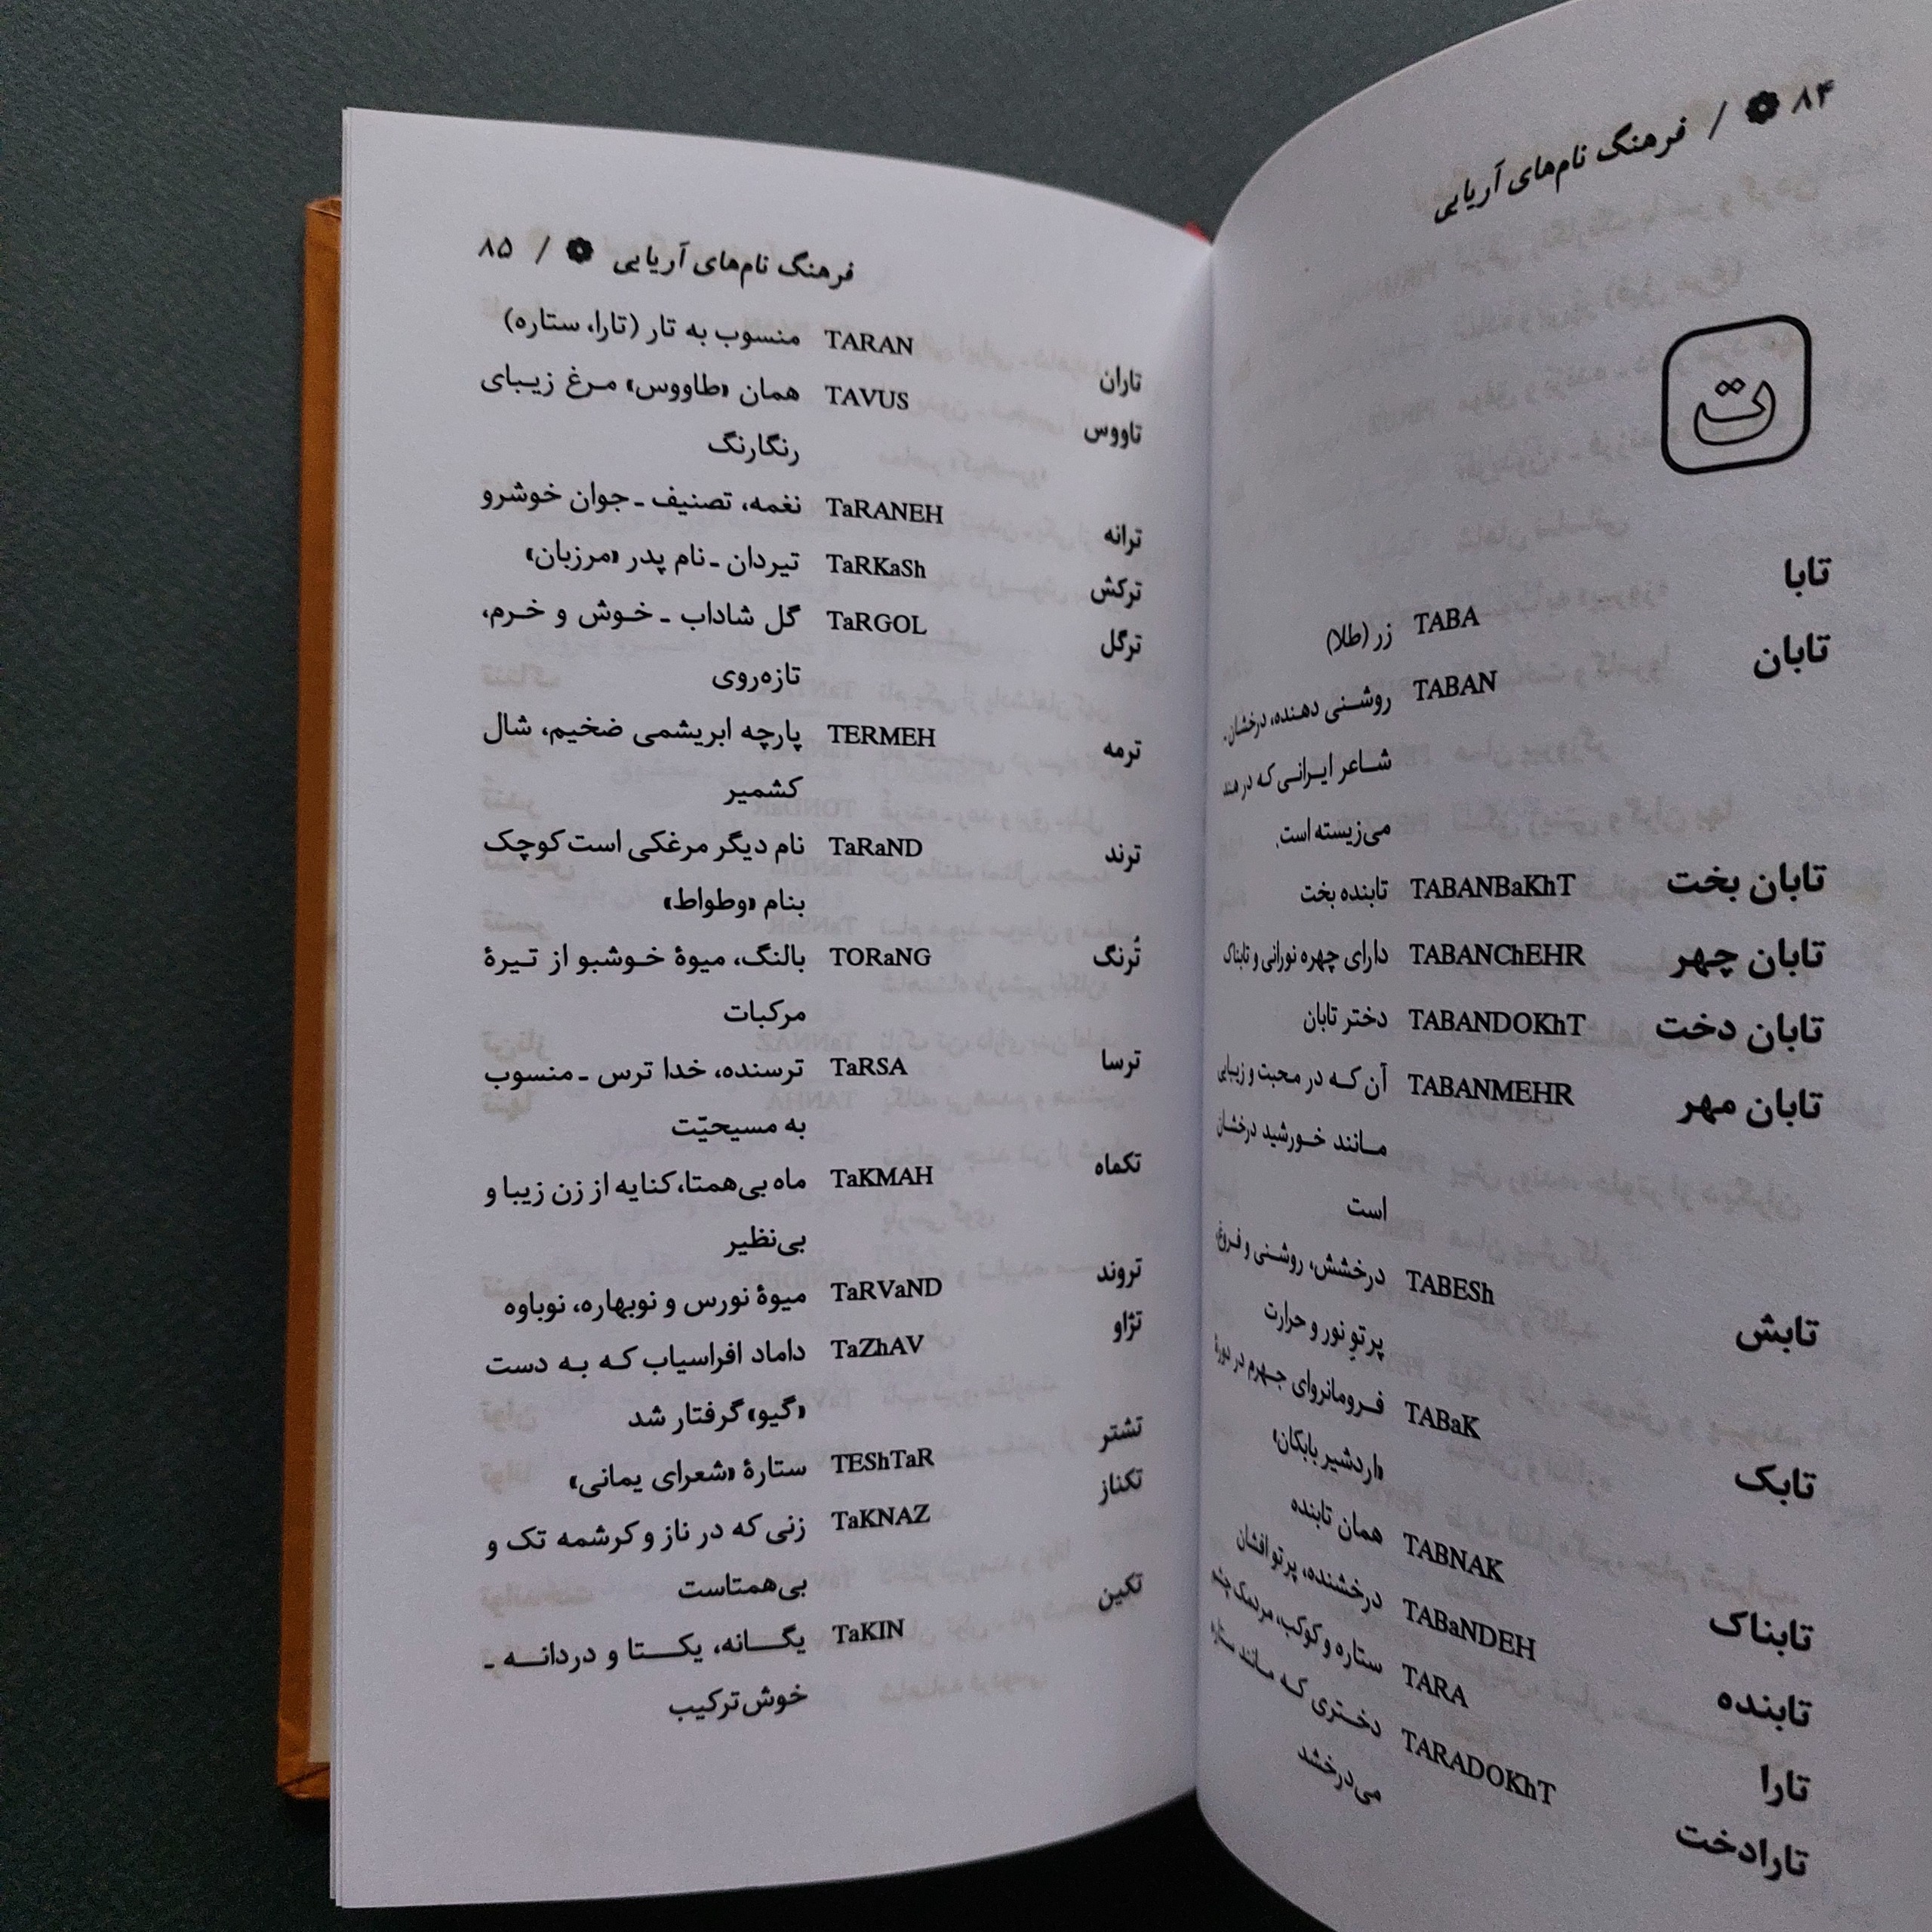 ۸۴ ✽ / فرهنگ نام‌های آریایی
ت
تابا TABA زر (طلا)
تابان TABAN روشنی دهنده، درخشان.
شاعر ایرانی که در هند
می‌زیسته است.
تابان بخت TABANBaKhT تابنده بخت
تابان چهر TABANChEHR دارای چهره نورانی و تابناک
تابان دخت TABANDOKhT دختر تابان
تابان مهر TABANMEHR آن که در محبت و زیبایی
مانند خورشید درخشان
است
تابش TABESh درخشش، روشنی و فروغ،
پرتوِ نور و حرارت
تابک TABaK فرومانروای جهرم در دورهٔ
«اردشیر بابکان»
تابناک TABNAK همان تابنده
تابنده TABaNDEH درخشنده، پرتو افشان
تارا TARA ستاره و کوکب، مردمک چشم
تارادخت TARADOKhT دختری که مانند ستاره
می‌درخشد
فرهنگ نام‌های آریایی ✽ / ۸۵
تاران TARAN منسوب به تار (تارا، ستاره)
تاووس TAVUS همان «طاووس» مرغ زیبای
رنگارنگ
ترانه TaRANEH نغمه، تصنیف ـ جوان خوشرو
ترکش TaRKaSh تیردان ـ نام پدر «مرزبان»
ترگل TaRGOL گل شاداب ـ خوش و خرم،
تازه‌روی
ترمه TERMEH پارچه ابریشمی ضخیم، شال
کشمیر
ترند TaRaND نام دیگر مرغکی است کوچک
بنام «وطواط»
تُرنگ TORaNG بالنگ، میوهٔ خوشبو از تیرهٔ
مرکبات
ترسا TaRSA ترسنده، خدا ترس ـ منسوب
به مسیحیّت
تکماه TaKMAH ماه بی‌همتا،کنایه از زن زیبا و
بی‌نظیر
تروند TaRVaND میوهٔ نورس و نوبهاره، نوباوه
تژاو TaZhAV داماد افراسیاب که به دست
«گیو» گرفتار شد
تشتر TEShTaR ستارهٔ «شعرای یمانی»
تکناز TaKNAZ زنی که در ناز و کرشمه تک و
بی‌همتاست
تکین TaKIN یگانه، یکتا و دردانه ـ
خوش‌ترکیب